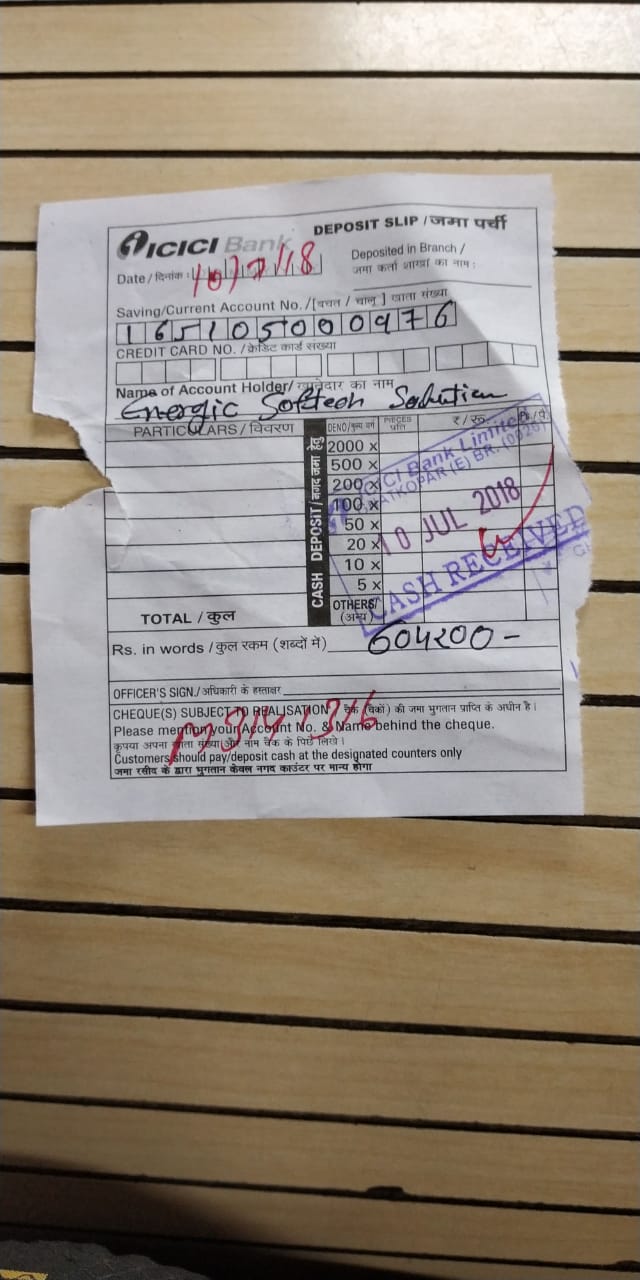 ICICI Bank
DEPOSIT SLIP / जमा पर्ची
Date / दिनांक : 10/7/18
Deposited in Branch /
जमा कर्ता शाखा का नाम :
Saving/Current Account No. /[बचत / चालू ] खाता संख्या
165105000976
CREDIT CARD NO. / क्रेडिट कार्ड संख्या
Name of Account Holder/ खातेदार का नाम
Energic Softech Solution
PARTICULARS / विवरण
CASH DEPOSIT / नगद जमा हेतु
DENO/मूल्य वर्ग
PIECES
₹ / रू.
2000 x
500 x
200 x
100 x
50 x
20 x
10 x
5 x
OTHERS/
(अन्य)
ICICI Bank Limited
GHATKOPAR (E) BR.
10 JUL 2018
CASH RECEIVED
TOTAL / कुल
Rs. in words / कुल रकम (शब्दों में) 604200-
OFFICER'S SIGN./अधिकारी के हस्ताक्षर
CHEQUE(S) SUBJECT TO REALISATION / चैक (चैकों) की जमा भुगतान प्राप्ति के अधीन है।
Please mention your Account No. & Name behind the cheque.
कृपया अपना खाता संख्या और नाम चैक के पिछे लिखे।
Customers should pay/deposit cash at the designated counters only
जमा रसीद के द्वारा भुगतान केवल नगद काउंटर पर मान्य होगा